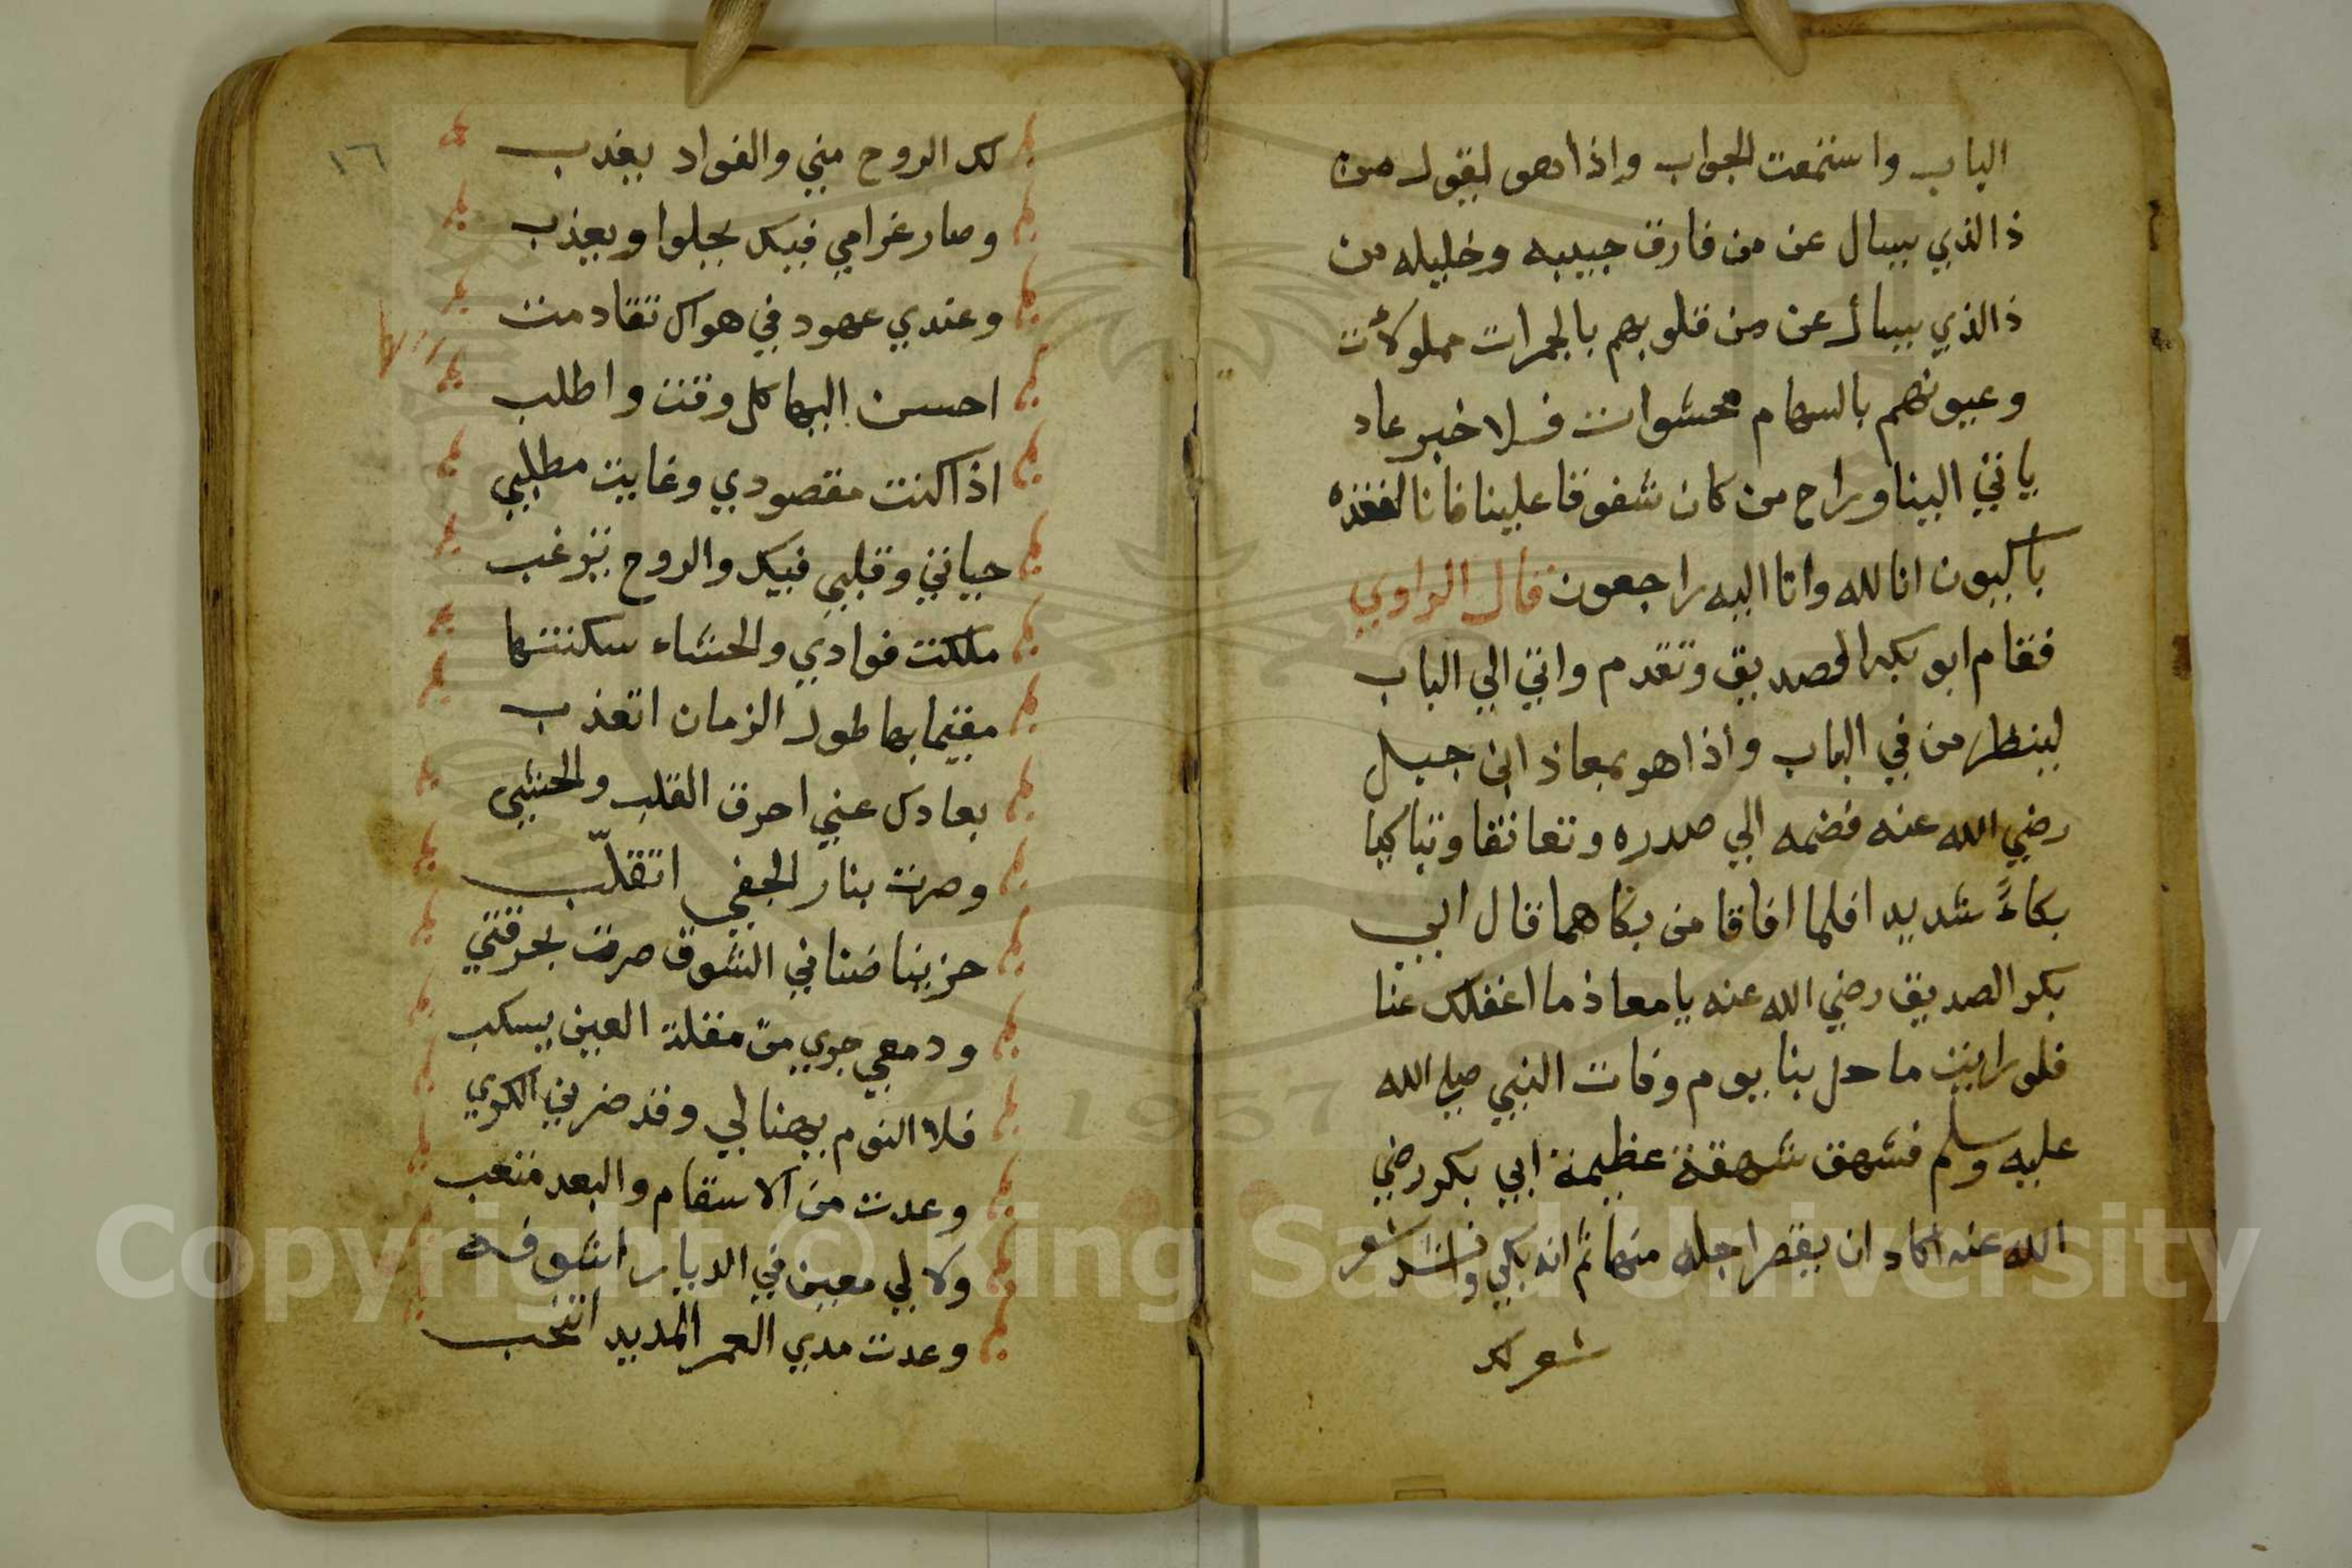 الباب واستمعت الجواب واذا هو يقول من
ذا الذي يسال عن من فارق حبيبه وخليله من
ذا الذي يسأل عن من قلوبهم بالجمرات مملوأت
وعيونهم بالسهام محشوات فلا خبر عاد
ياتي الينا وراح من كان شفوقا علينا فانا لفقده
باكيون انا لله وانا اليه راجعون قال الراوي
فقام ابو بكر الصديق وتقدم واتي الي الباب
لينظر من في الباب واذا هو بمعاذ ابن جبل
رضي الله عنه فضمه الي صدره وتعانقا وتباكيا
بكاءً شديد افلما افاقا من بكاهما قال ابي
بكر الصديق رضي الله عنه يا معاذ ما اغفلك عنا
فلو رايت ما حل بنا يوم وفات النبي صلي الله
عليه وسلم فشهق شهقة عظيمة ابي بكر رضي
الله عنه اكاد ان يقصر اجله منها ثم انه بكي وانشد شعر
شعر لك
١٦
لك الروح مني والفواد يعذب
وصار غرامي فيك يحلوا ويعذب
وعندي عهود في هواك تقادمت
احسن اليها كل وقت واطلب
اذا كنت مقصودي وغايت مطلبي
حياتي وقلبي فيك والروح ترغب
ملكت فوادي والحشاء سكنتها
مقيما بها طول الزمان اتعذب
بعادك عني احرق القلب والحشي
وصرت بنار الجفي اتقلّب
حزينا ضناني الشوق صرت بحرقتي
ودمعي جري من مقلة العين يسكب
فلا النوم يهنالي وقد ضرني الكري
وعدت من الاسقام والبعد متعب
ولا لي معين في الديار اشوفه
وعدت مدي العمر المديد انتحب
Copyright © King Saud University
1957